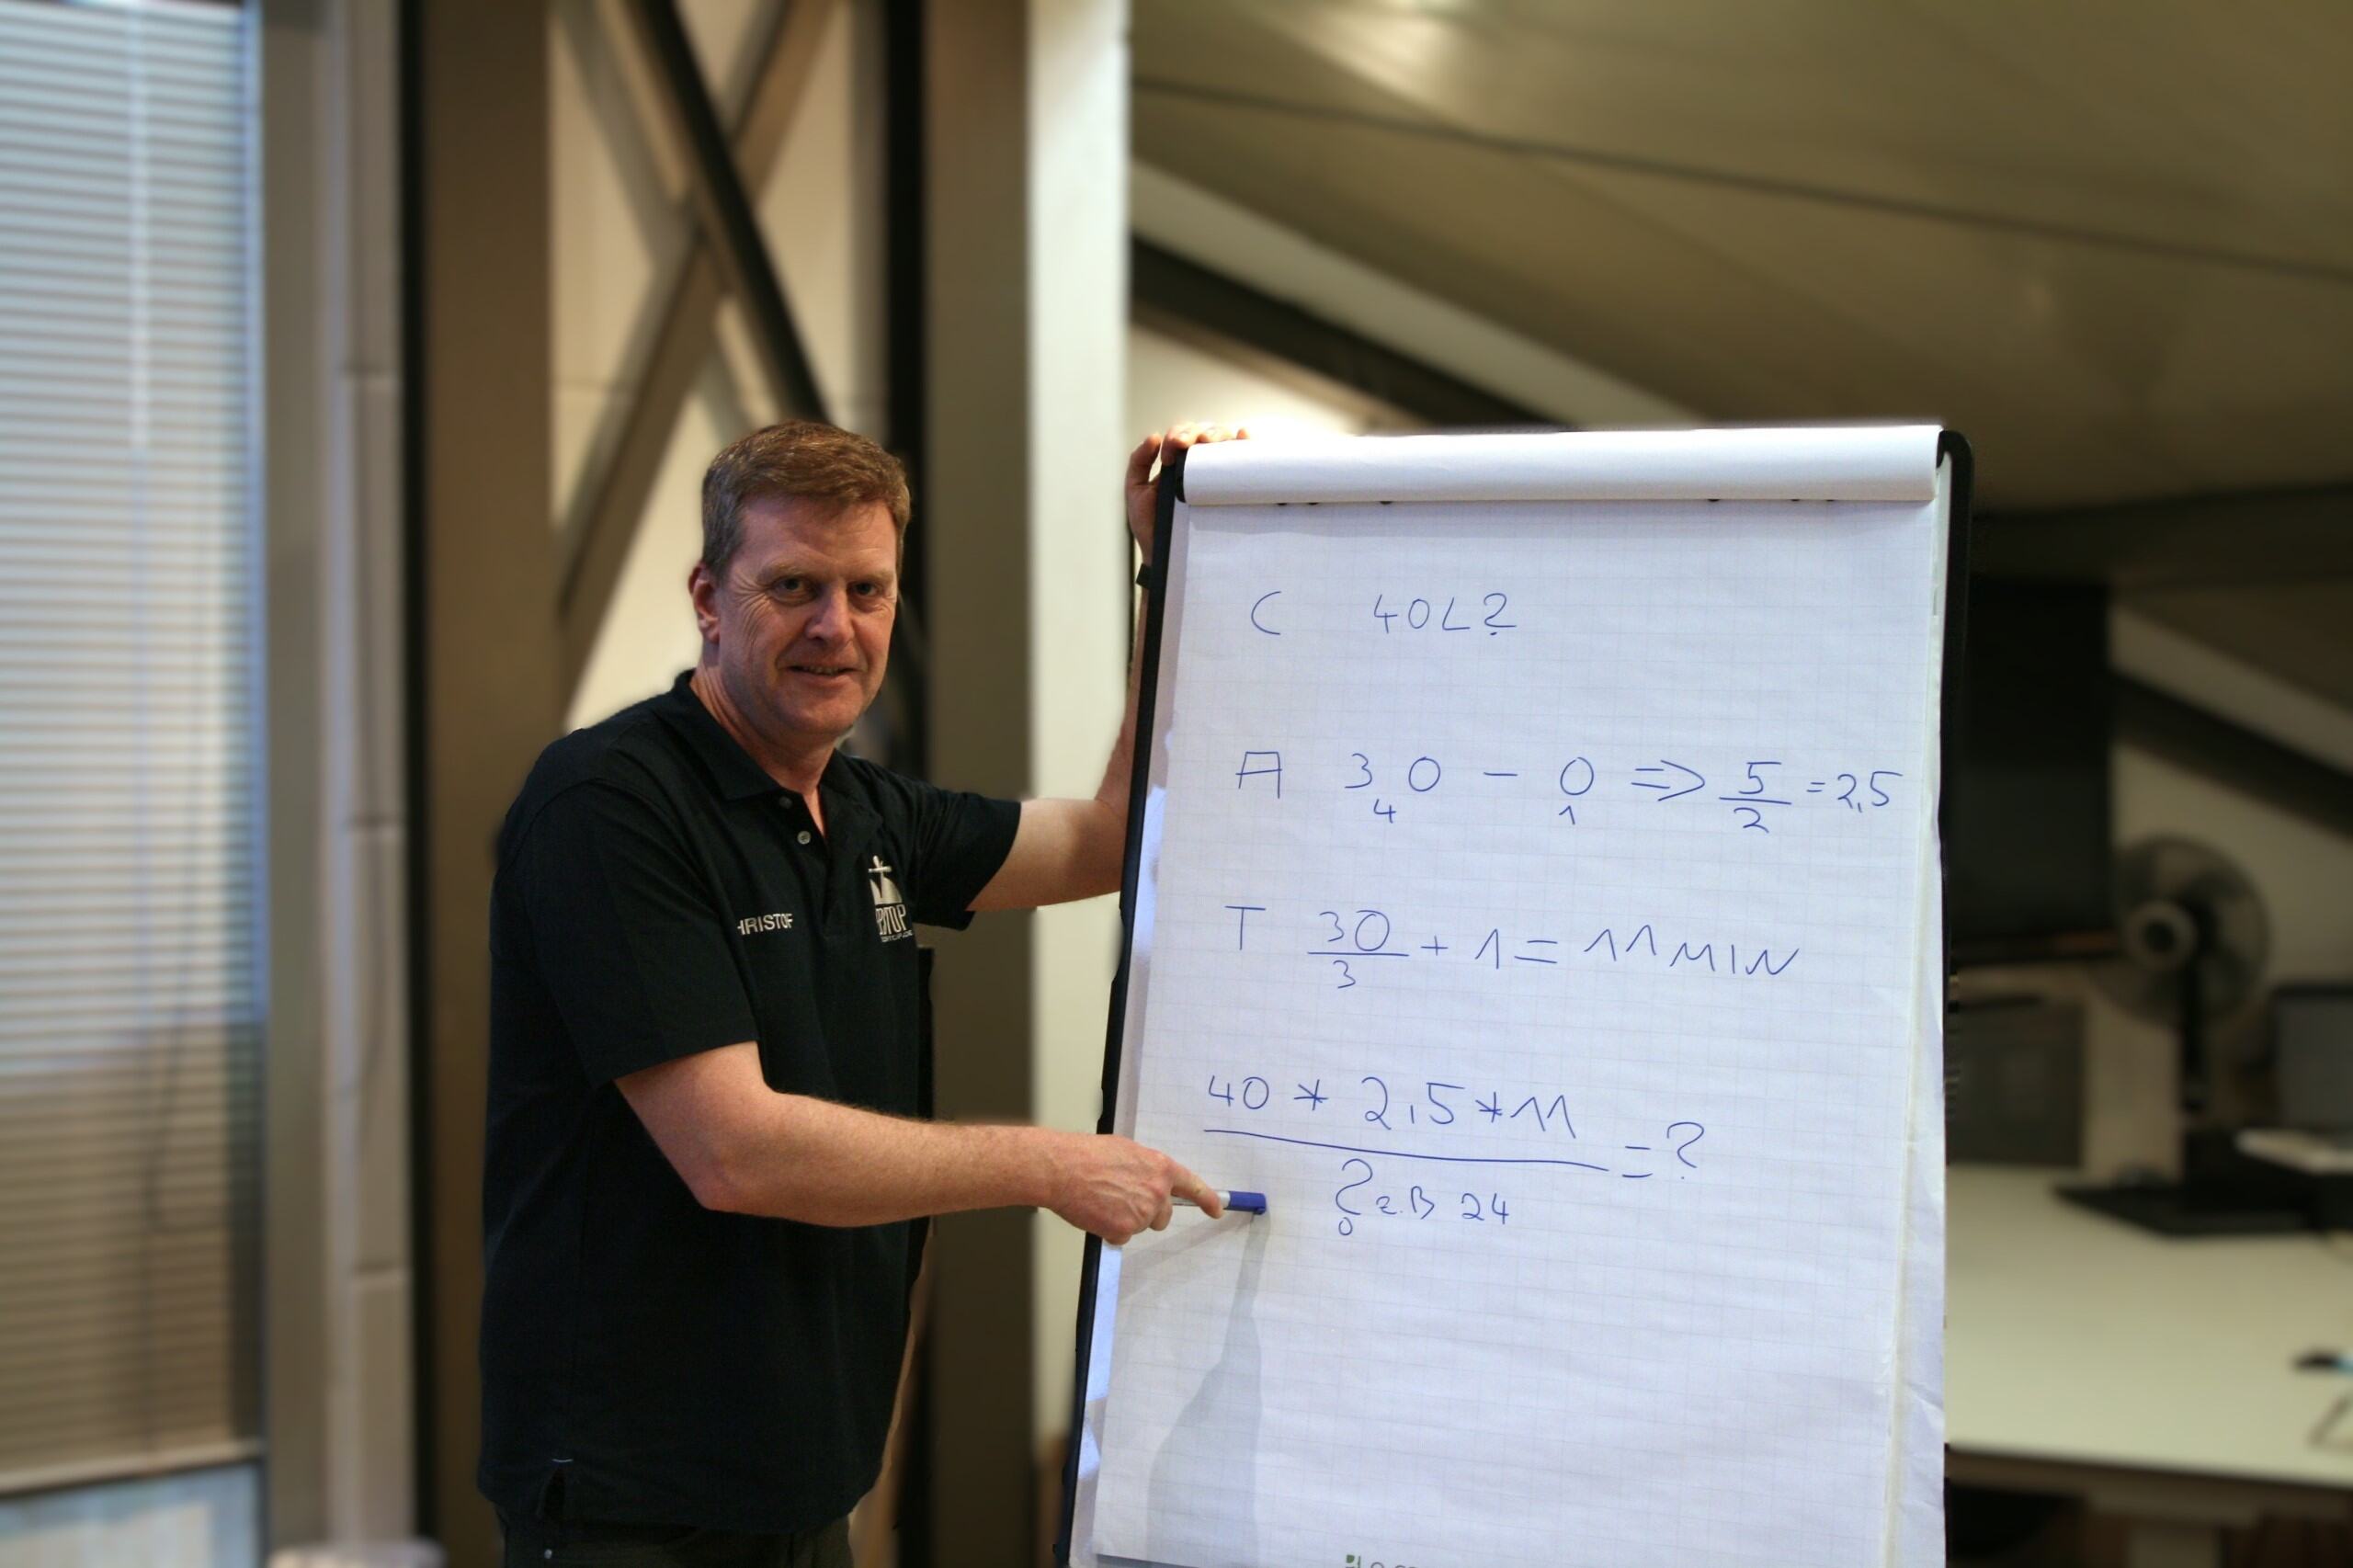 HRISTOF
C 40L?
A 30 - 0 => 5/2 = 2,5
4 1
T 30/3 + 1 = 11 MIN
40 * 2,5 * 11
= ?
? z.B 24